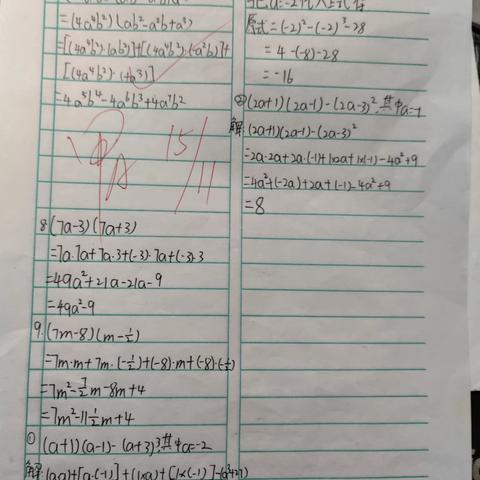 =(4a⁴b²)(ab²-a²b+a³)
=[(4a⁴b²)·(ab²)]+[(4a⁴b²)·(-a²b)]+
[(4a⁴b²)·(+a³)]
=4a⁵b⁴-4a⁶b³+4a⁷b²
A
15/11
8.(7a-3)(7a+3)
=7a·7a+7a·3+(-3)·7a+(-3)·3
=49a²+21a-21a-9
=49a²-9
9.(7m-8)(m-½)
=7m·m+7m·(-½)+(-8)·m+(-8)·(-½)
=7m²-7/2m-8m+4
=7m²-11½m+4
①(a+1)(a-1)-(a+3)³,其中a=-2
解:(a·a)+[a·(-1)]+(1×a)+[1×(-1)]-(a³+27)
原式=(-2)²-(-2)³-28
=4-(-8)-28
=-16
②(2a+1)(2a-1)-(2a-3)²,其中a=-1
解:(2a+1)(2a-1)-(2a-3)²
=2a·2a+2a·(-1)+1×2a+1×(-1)-4a²+9
=4a²+(-2a)+2a+(-1)-4a²+9
=8